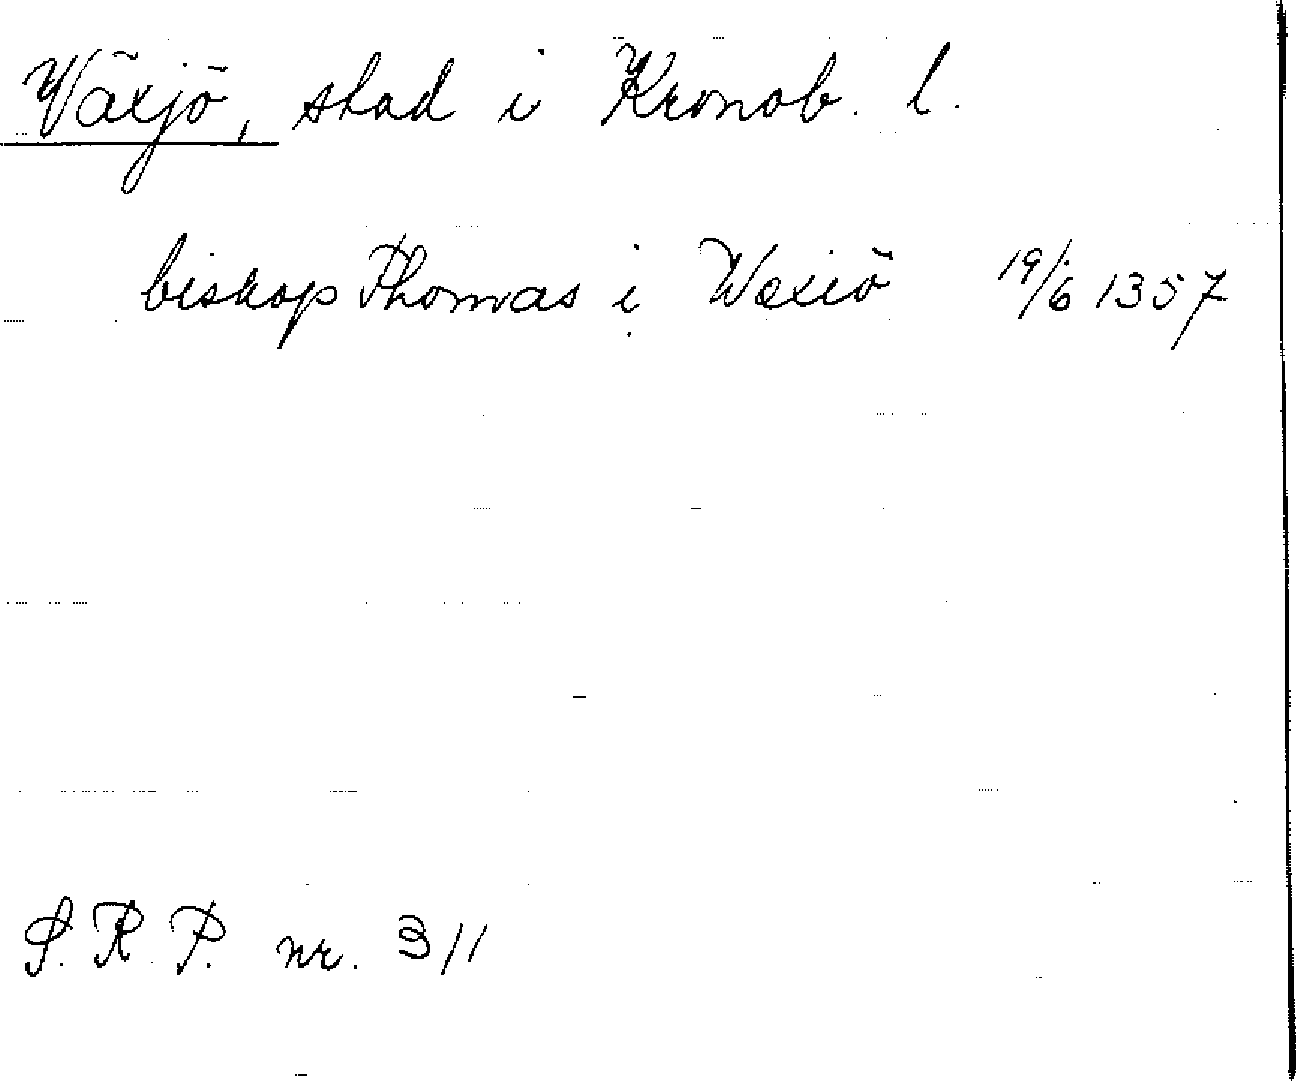 Växjö, stad i Kronob. l.
biskop Thomas i Wexiö 19/6 1357
S. R. P. nr. 311